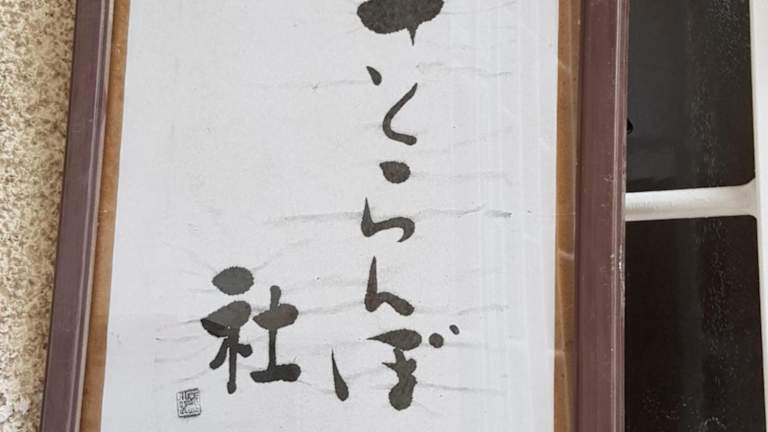 さくらんぼ
社